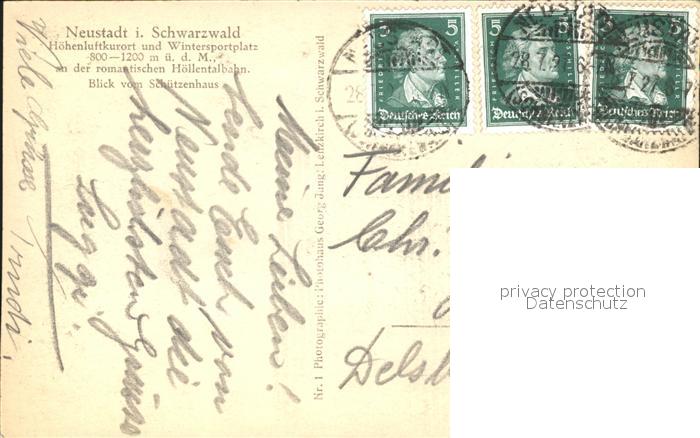 Neustadt i. Schwarzwald
Höhenluftkurort und Wintersportplatz
800—1200 m ü. d. M.,
an der romantischen Höllentalbahn.
Blick vom Schützenhaus
Meine Lieben!
Sende Euch von
Neustadt die
herzlichsten Grüsse
Viele Grüsse Trudi.
Nr. 1 Photographie: Photohaus Georg Jung; Lenzkirch i. Schwarzwald
5 5
FRIEDRICH SCHILLER
Deutsches Reich
5 5
FRIEDRICH SCHILLER
Deutsches Reich
5 5
Deutsches Reich
Famili
Chr.
Dels
privacy protection
Datenschutz